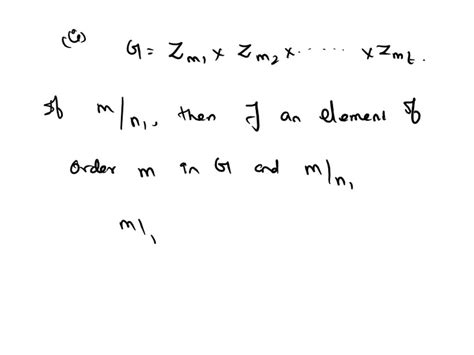 (i) G = Z_{m_1} × Z_{m_2} × ...... × Z_{m_t}.
If m/n_1, then ∃ an element of
order m in G and m/n_1
m|_1